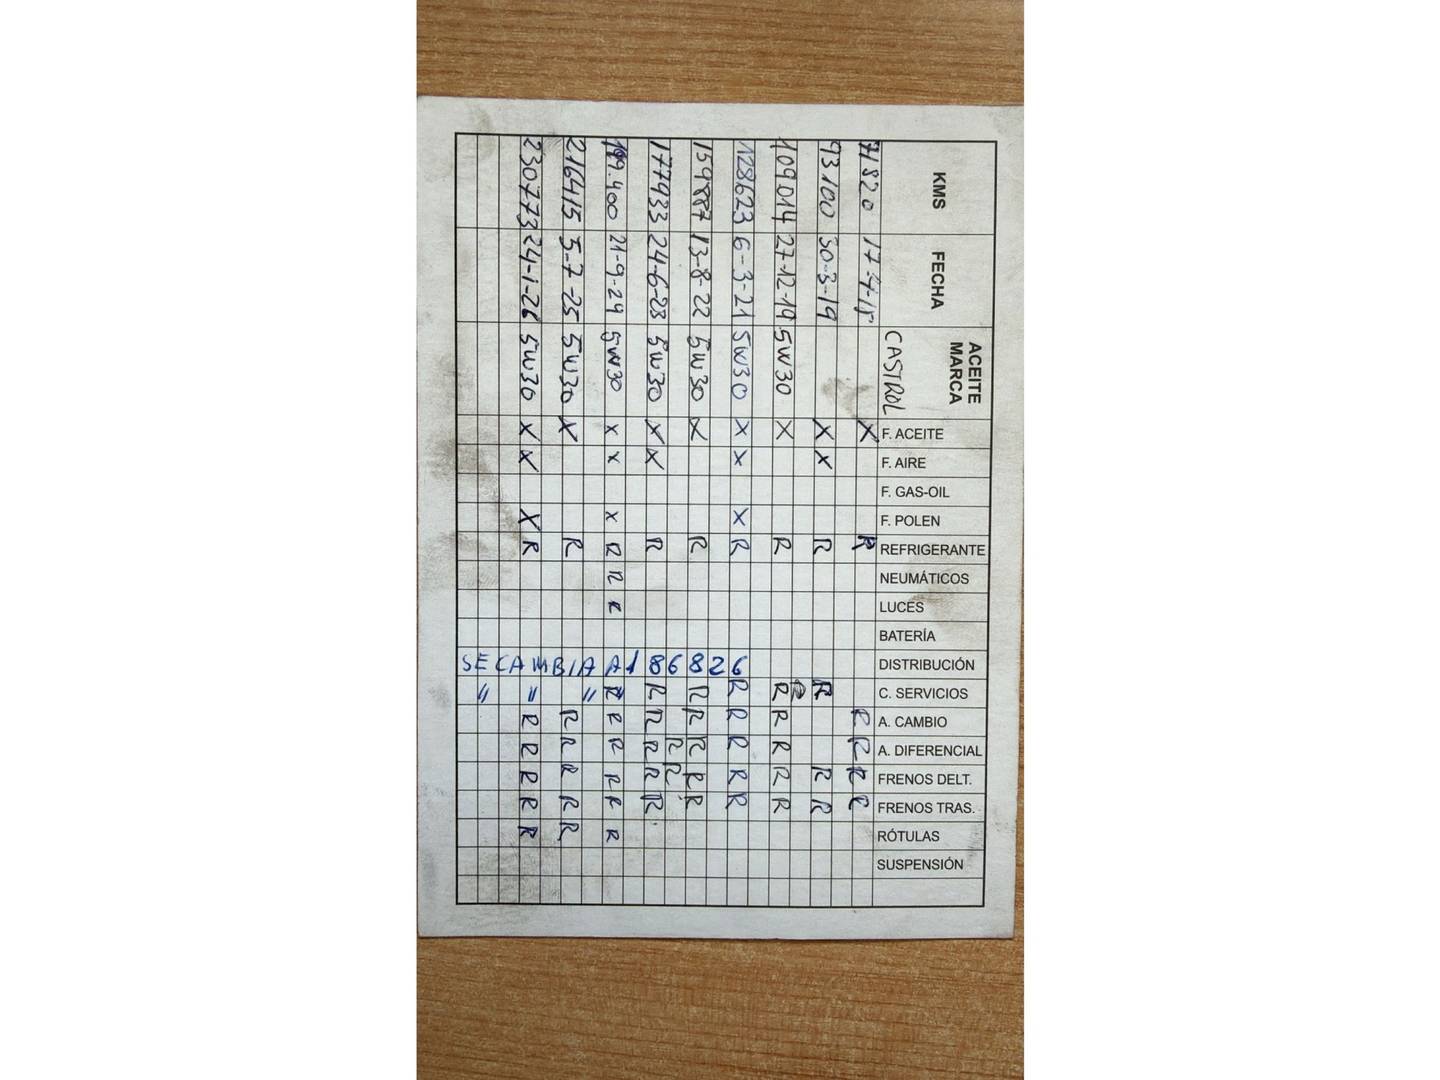 KMS FECHA ACEITE MARCA F. ACEITE F. AIRE F. GAS-OIL F. POLEN REFRIGERANTE NEUMÁTICOS LUCES BATERÍA DISTRIBUCIÓN C. SERVICIOS A. CAMBIO A. DIFERENCIAL FRENOS DELT. FRENOS TRAS. RÓTULAS SUSPENSIÓN
CASTROL
71820 X R R R R R
93100 30-3-19 X X R R R R
R
109014 27-12-19 5W30 X R R R R R R
128623 6-3-21 5W30 X X X R R R R R R
159887 13-8-22 5W30 X R R R R R R
R R
177933 24-6-23 5W30 X X R R R R R R
199.400 21-9-24 5W30 X X X R R R R R R R R R
216415 5-7-25 5W30 X R R R R R R
230773 24-1-26 5W30 X X X R R R R R R
SE CAMBIA A 186826
" " " "